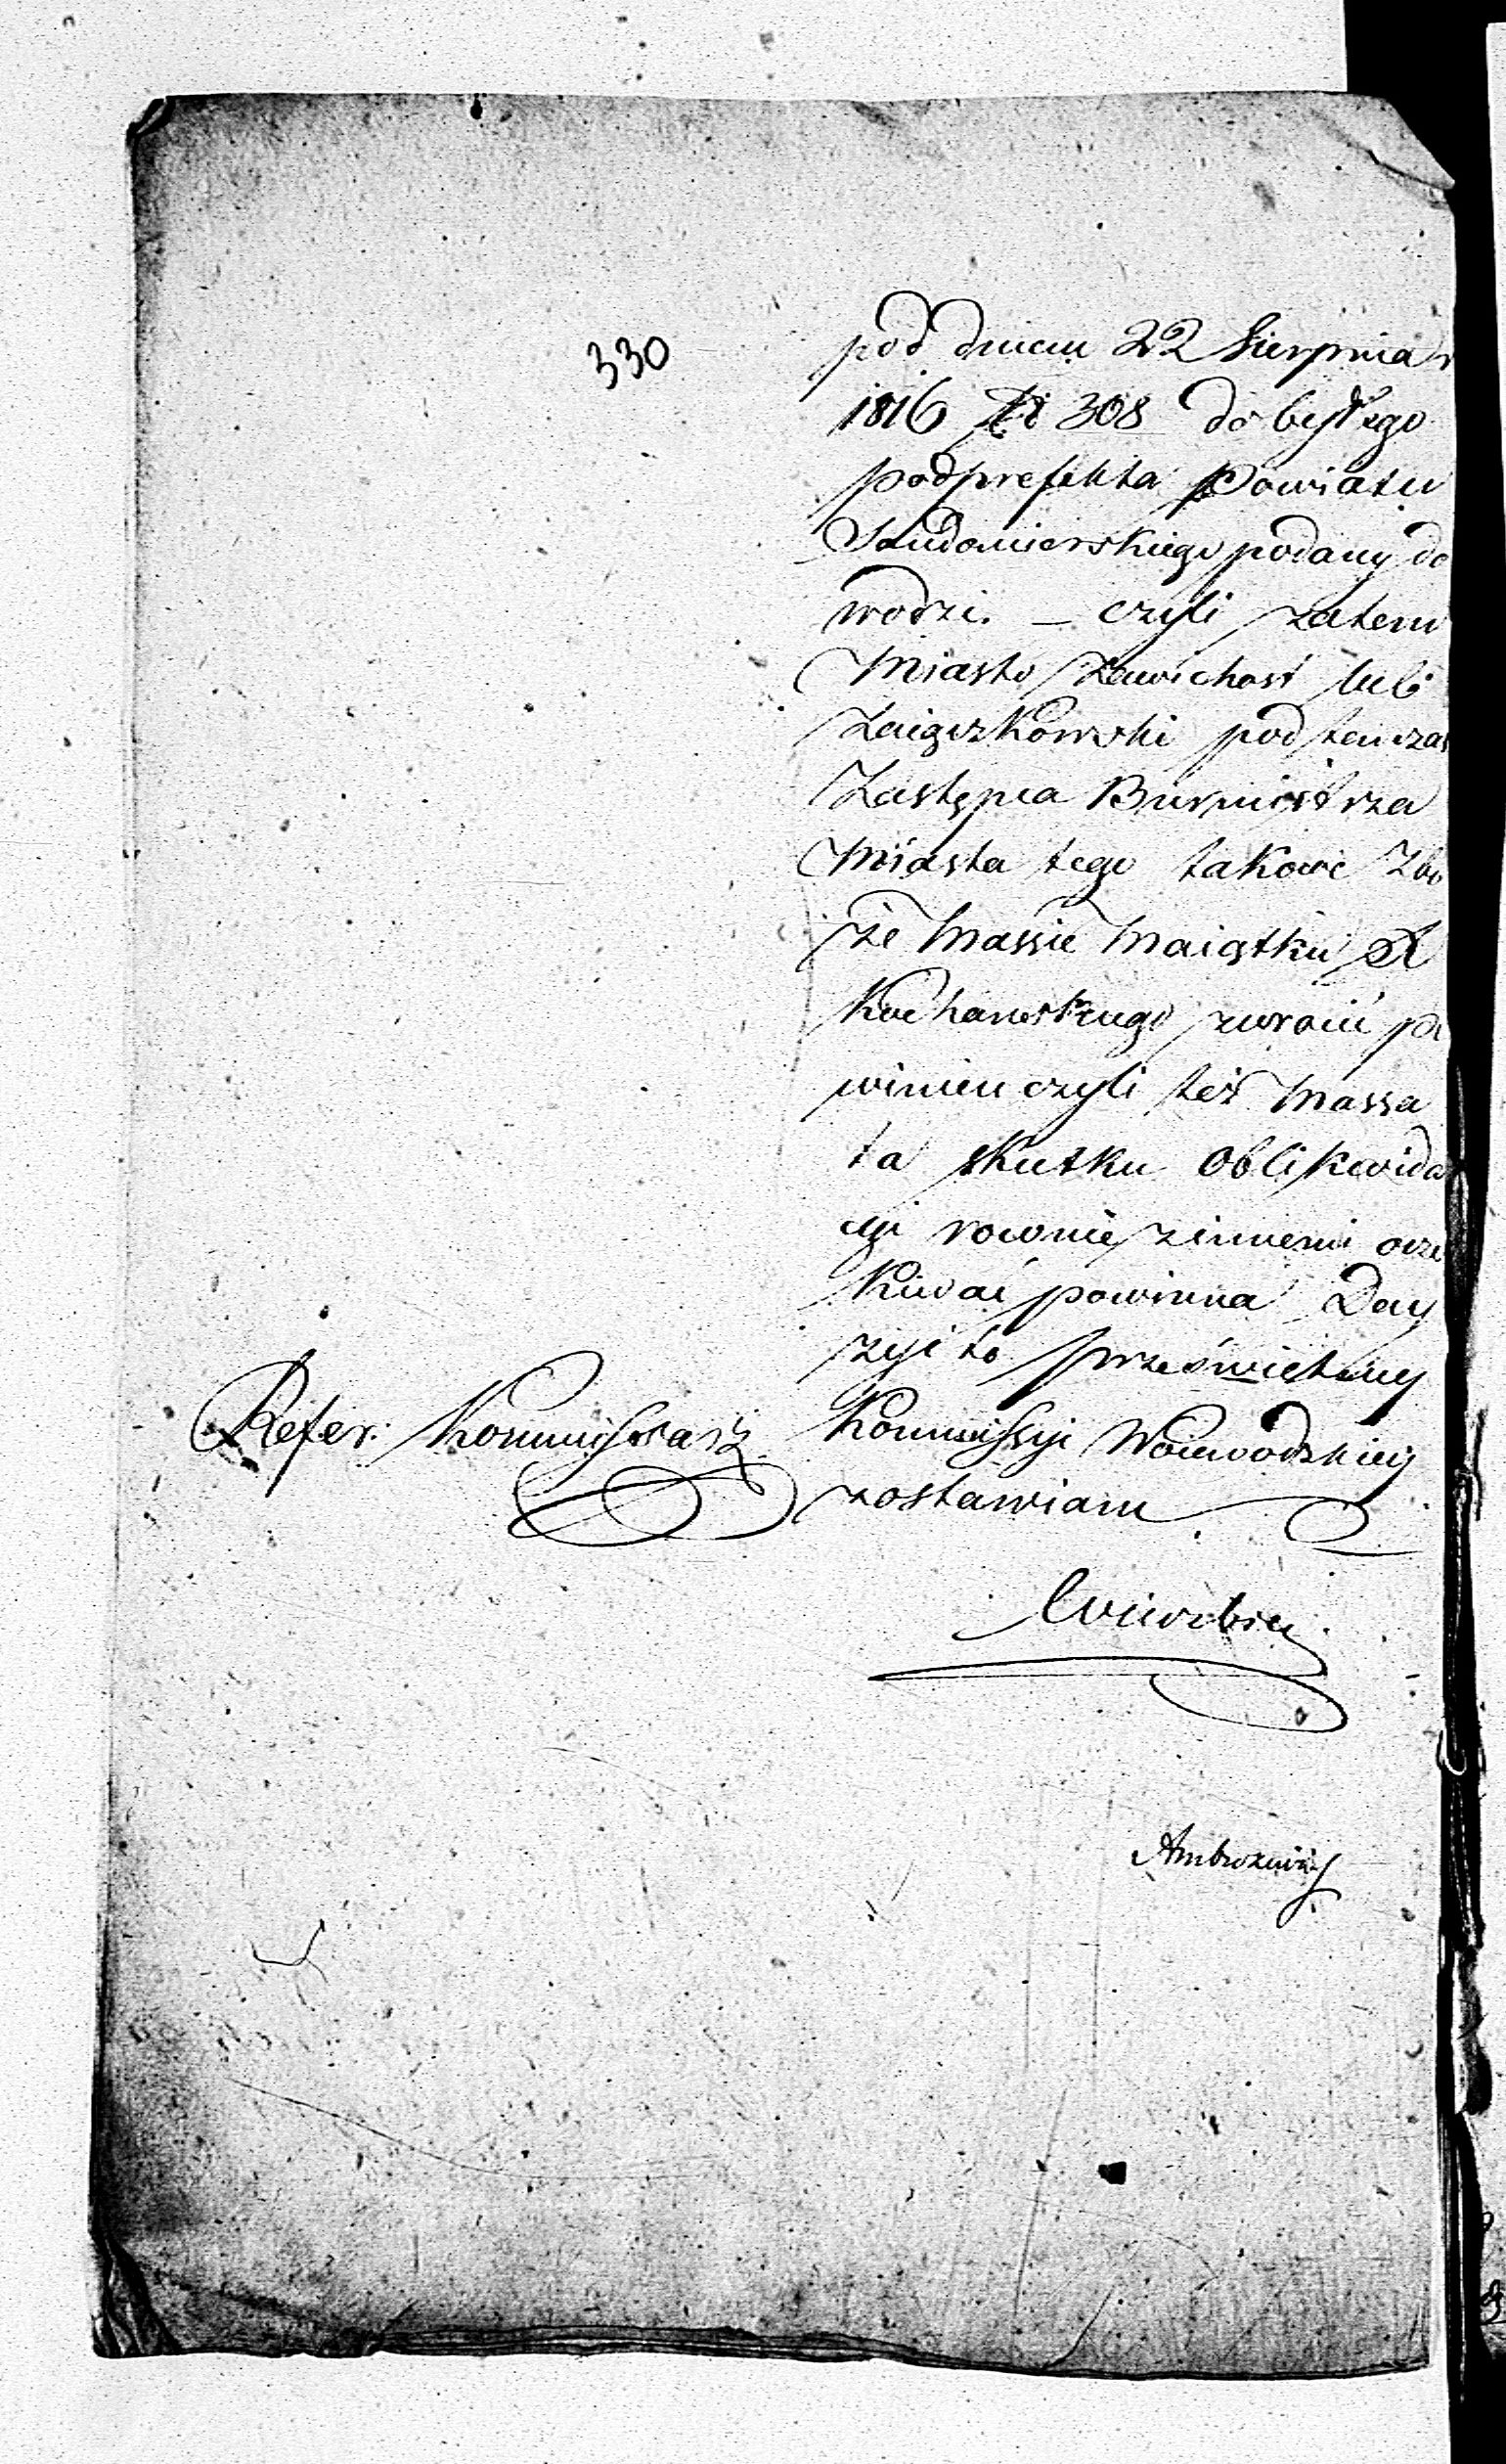 330
pod dniem 22 Sierpnia r
1816 Nr 308 do byłego
podprefekta Powiatu
Sandomierskiego podany do
wodzi. – czyli zatem
Miasto Zawichost lub
Zaiączkowski pod tenczas
Zastępca Burmistrza
Miasta tego takowe Zbo
że Massie Maiątku
Kochanowskiego zwrocić po
winien czyli też Massa
ta skutku Oblikwida
cyi rownie z innemi ocze
kiwać powinna Decy
zyi to prześwietney
Refer: Kommissarz Kommissyi Woiewodzkiey
zostawiam
Ambrozewicz